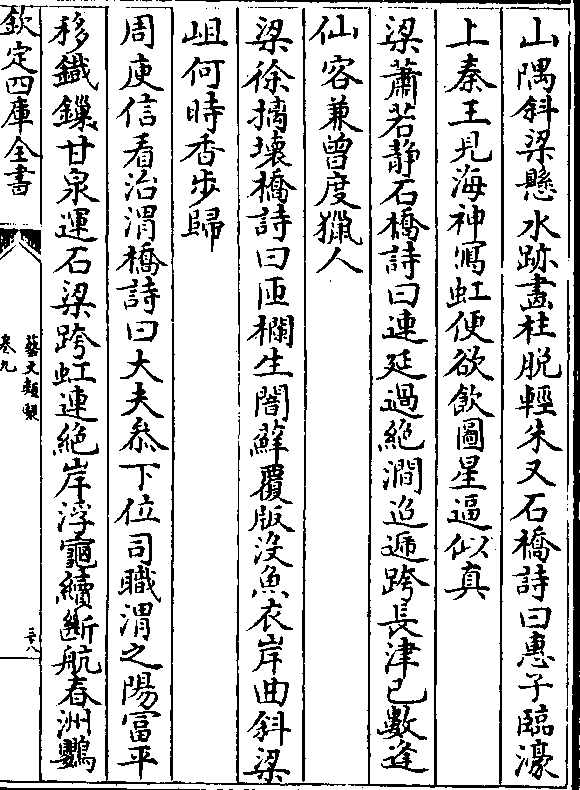 山隅斜梁懸水跡畫柱脱輕朱又石橋詩曰惠子臨濠
上秦王見海神寫虹便欲飲圖星逼似真
梁蕭若静石橋詩曰連延過絶澗迢遞跨長津已數逢
仙客兼曾度獵人
梁徐摛壊橋詩曰匝欄生闇蘚覆版没魚衣岸曲斜梁
岨何時香步歸
周庾信看治渭橋詩曰大夫叅下位司職渭之陽富平
移鐵鏁甘泉運石梁跨虹連絶岸浮黿續斷航春洲鸚
欽定四庫全書
藝文類聚
卷九
三十八